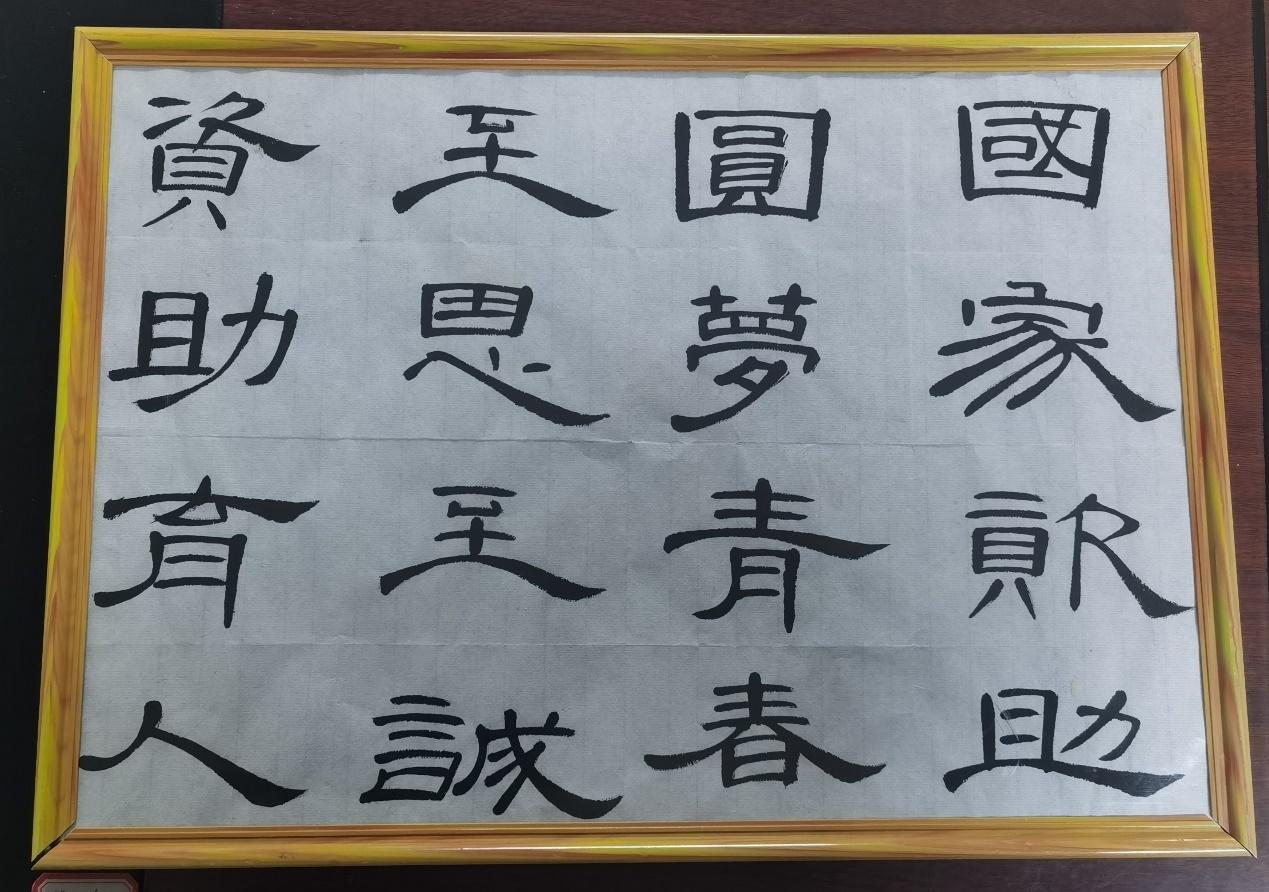 國家資助
圓夢青春
至思至誠
資助育人